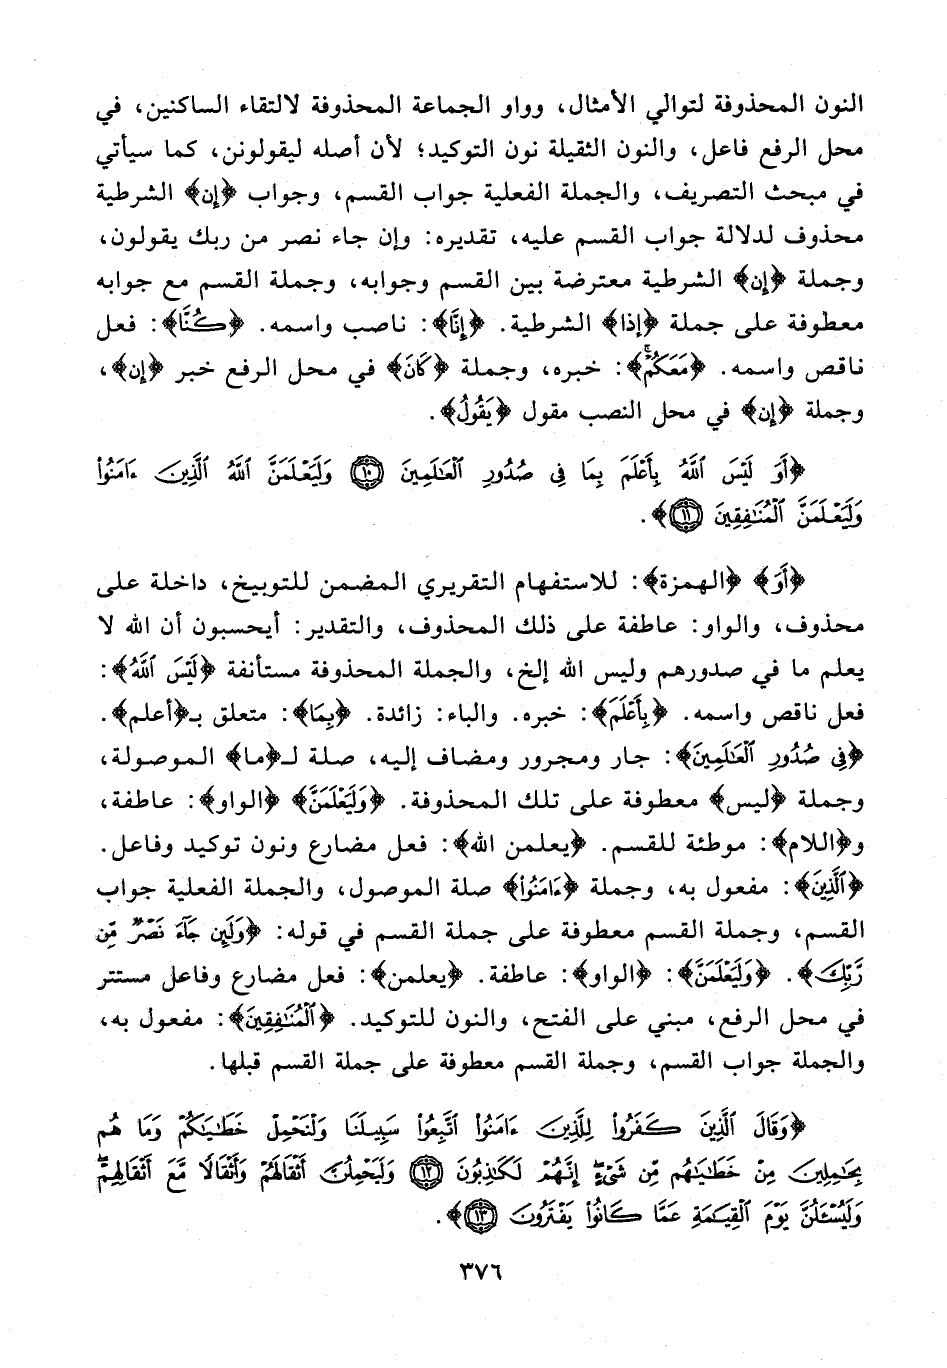 النون المحذوفة لتوالي الأمثال، وواو الجماعة المحذوفة لالتقاء الساكنين، في
محل الرفع فاعل، والنون الثقيلة نون التوكيد؛ لأن أصله ليقولونن، كما سيأتي
في مبحث التصريف، والجملة الفعلية جواب القسم، وجواب ﴿إن﴾ الشرطية
محذوف لدلالة جواب القسم عليه، تقديره: وإن جاء نصر من ربك يقولون،
وجملة ﴿إن﴾ الشرطية معترضة بين القسم وجوابه، وجملة القسم مع جوابه
معطوفة على جملة ﴿إذا﴾ الشرطية. ﴿إِنَّا﴾: ناصب واسمه. ﴿كُنَّا﴾: فعل
ناقص واسمه. ﴿مَعَكُمْ﴾: خبره، وجملة ﴿كَانَ﴾ في محل الرفع خبر ﴿إن﴾،
وجملة ﴿إن﴾ في محل النصب مقول ﴿يَقُولُ﴾.
﴿أَوَ لَيْسَ ٱللَّهُ بِأَعْلَمَ بِمَا فِى صُدُورِ ٱلْعَـٰلَمِينَ ١٠ وَلَيَعْلَمَنَّ ٱللَّهُ ٱلَّذِينَ ءَامَنُواْ
وَلَيَعْلَمَنَّ ٱلْمُنَـٰفِقِينَ ١١﴾.
﴿أَوَ﴾ ﴿الهمزة﴾: للاستفهام التقريري المضمن للتوبيخ، داخلة على
محذوف، والواو: عاطفة على ذلك المحذوف، والتقدير: أيحسبون أن الله لا
يعلم ما في صدورهم وليس الله إلخ، والجملة المحذوفة مستأنفة ﴿لَيْسَ ٱللَّهُ﴾:
فعل ناقص واسمه. ﴿بِأَعْلَمَ﴾: خبره. والباء: زائدة. ﴿بِمَا﴾: متعلق بـ﴿أعلم﴾.
﴿فِى صُدُورِ ٱلْعَـٰلَمِينَ﴾: جار ومجرور ومضاف إليه، صلة لـ﴿ما﴾ الموصولة،
وجملة ﴿ليس﴾ معطوفة على تلك المحذوفة. ﴿وَلَيَعْلَمَنَّ﴾ ﴿الواو﴾: عاطفة،
و﴿اللام﴾: موطئة للقسم. ﴿يعلمن الله﴾: فعل مضارع ونون توكيد وفاعل.
﴿ٱلَّذِينَ﴾: مفعول به، وجملة ﴿ءَامَنُواْ﴾ صلة الموصول، والجملة الفعلية جواب
القسم، وجملة القسم معطوفة على جملة القسم في قوله: ﴿وَلَئِن جَآءَ نَصْرٌ مِّن
رَّبِّكَ﴾. ﴿وَلَيَعْلَمَنَّ﴾: ﴿الواو﴾: عاطفة. ﴿يعلمن﴾: فعل مضارع وفاعل مستتر
في محل الرفع، مبني على الفتح، والنون للتوكيد. ﴿ٱلْمُنَـٰفِقِينَ﴾: مفعول به،
والجملة جواب القسم، وجملة القسم معطوفة على جملة القسم قبلها.
﴿وَقَالَ ٱلَّذِينَ كَفَرُواْ لِلَّذِينَ ءَامَنُواْ ٱتَّبِعُواْ سَبِيلَنَا وَلْنَحْمِلْ خَطَـٰيَـٰكُمْ وَمَا هُم
بِحَـٰمِلِينَ مِنْ خَطَـٰيَـٰهُم مِّن شَىْءٍ إِنَّهُمْ لَكَـٰذِبُونَ ١٢ وَلَيَحْمِلُنَّ أَثْقَالَهُمْ وَأَثْقَالًا مَّعَ أَثْقَالِهِمْ
وَلَيُسْـَٔلُنَّ يَوْمَ ٱلْقِيَـٰمَةِ عَمَّا كَانُواْ يَفْتَرُونَ ١٣﴾.
٣٧٦